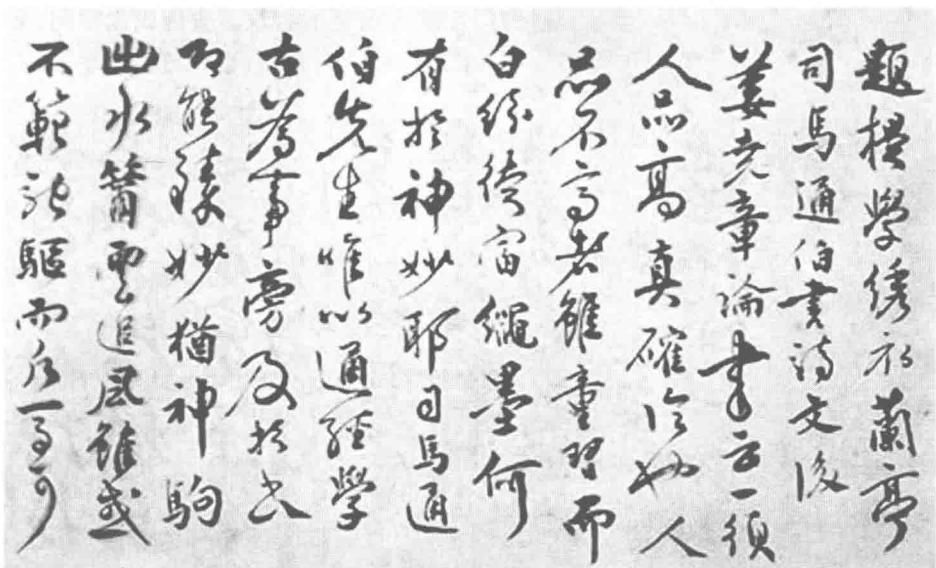 題 學 蘭亭
司馬通伯書詩文後
姜堯章論書云一須
人品高真確論也人
品不高者雖童習而
白紛 窘繩墨何
有於神妙耶司馬通
伯先生唯以通經學
古為事旁及於書
即能臻妙猶神駒
水籋雲追風雖或
不範馳驅而 一日可